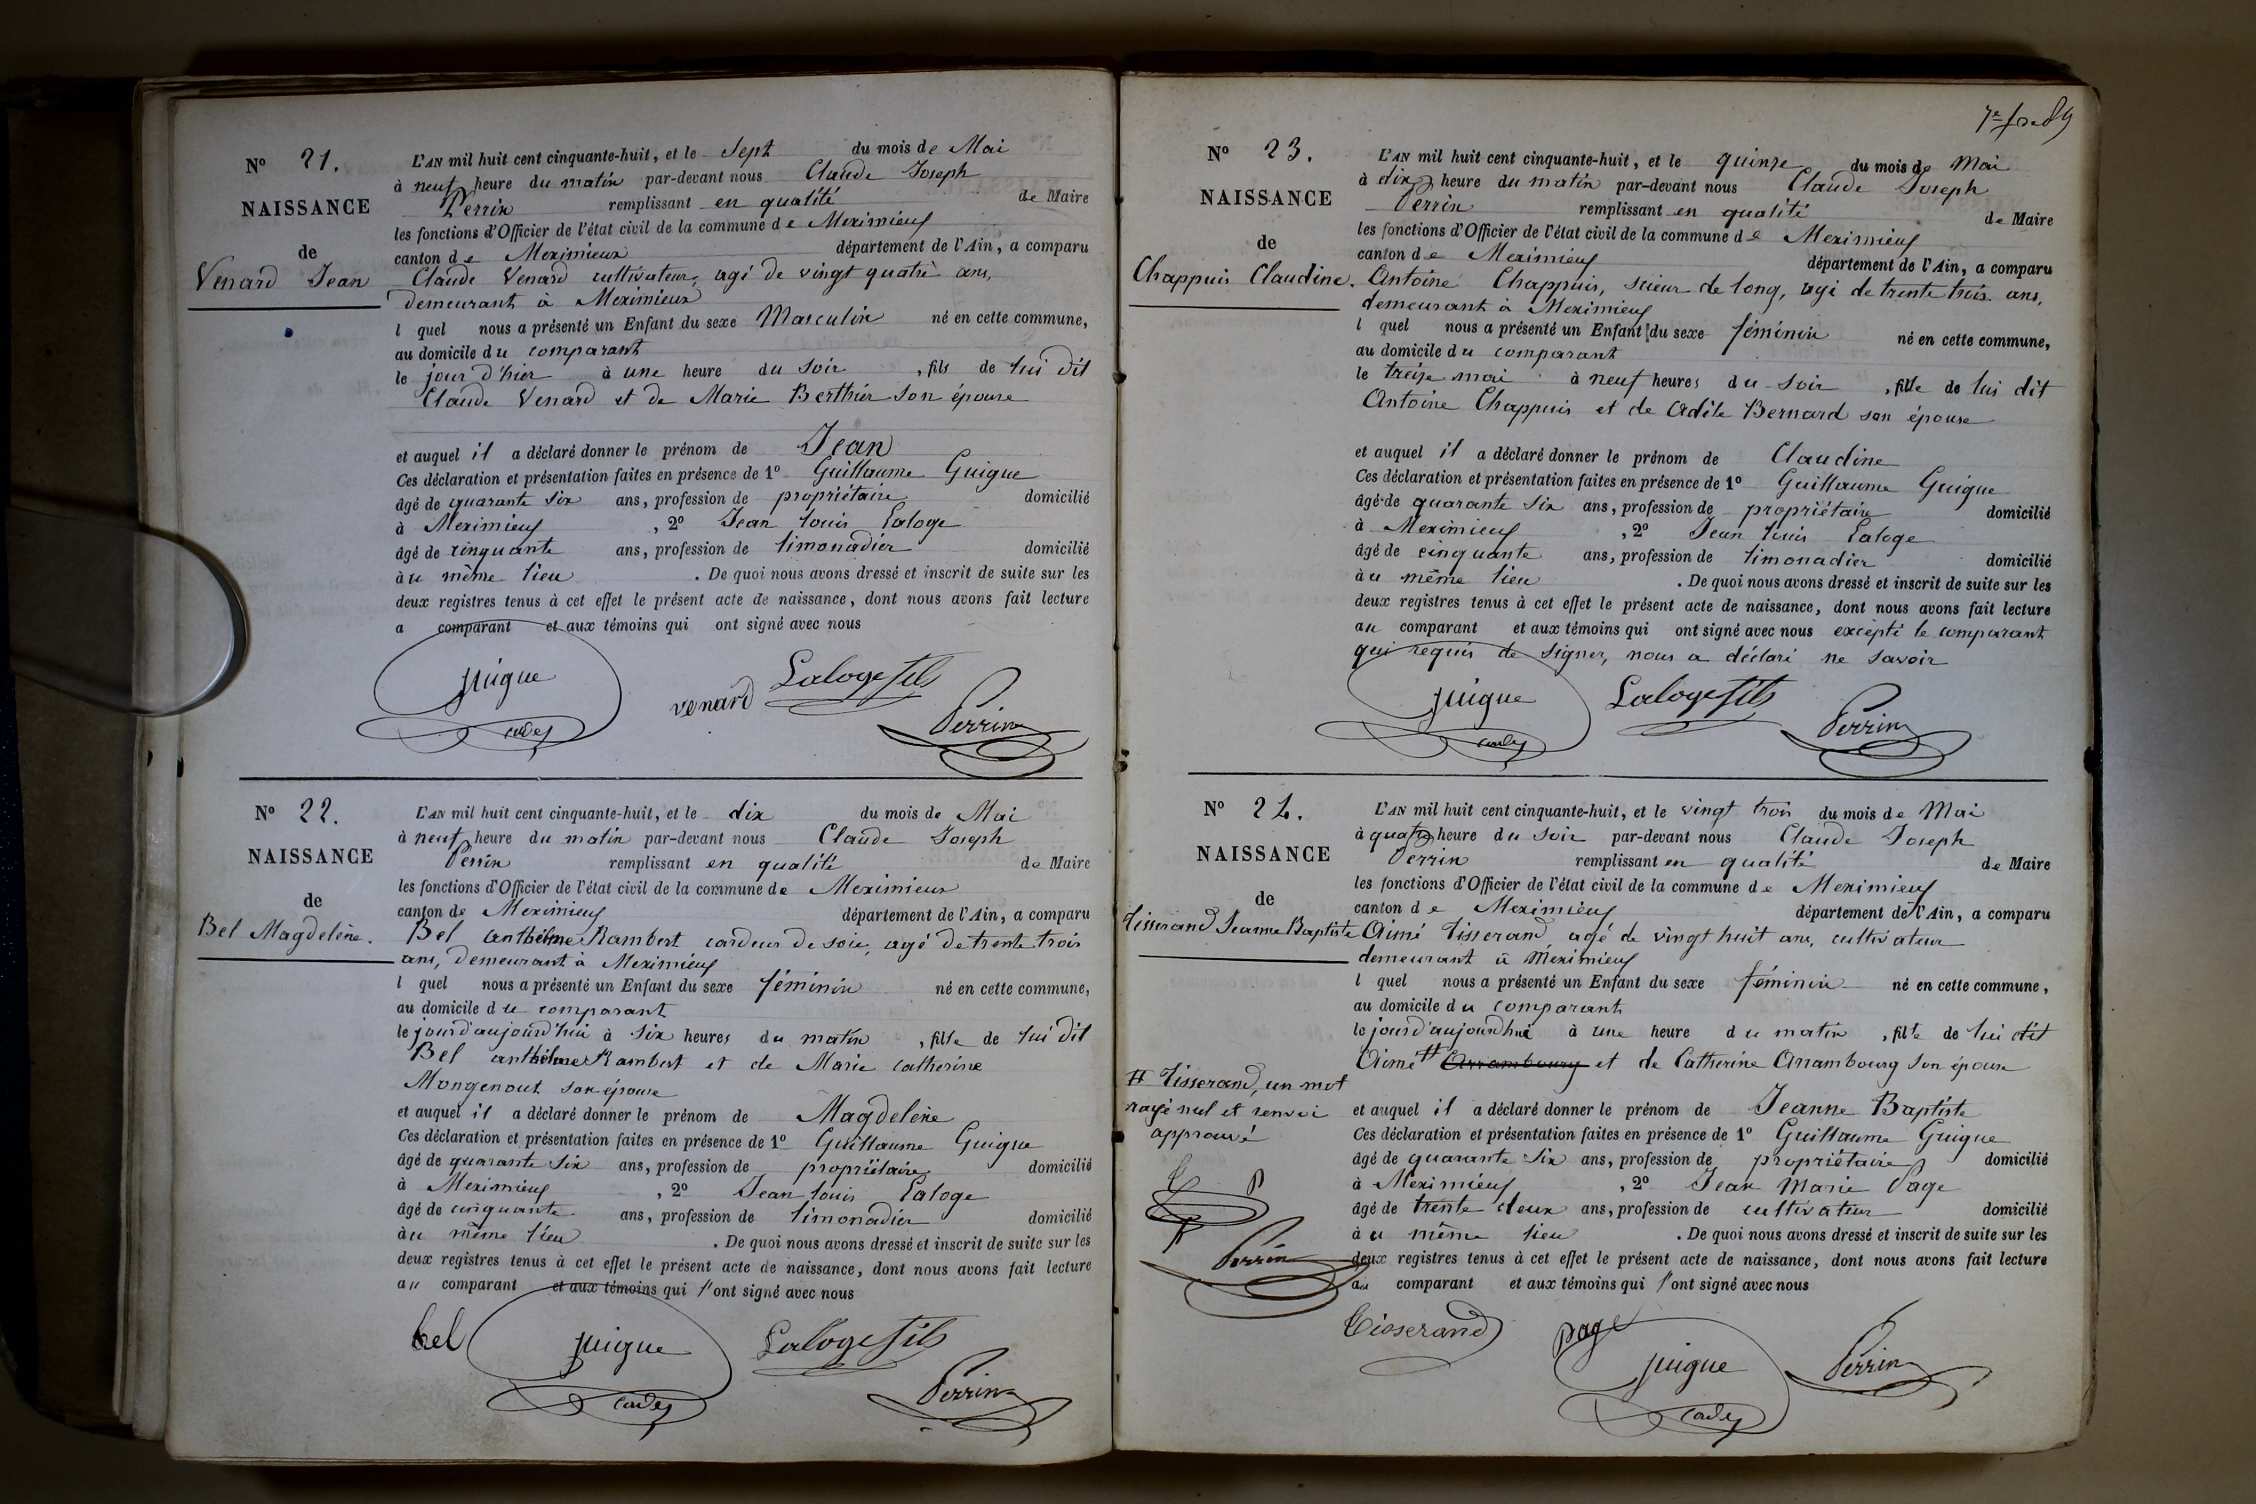 N° 21.
NAISSANCE
de
Venard Jean
L'AN mil huit cent cinquante-huit, et le Sept du mois de Mai
à neuf heure du matin par-devant nous Claude Joseph
Perrin remplissant en qualité de Maire
les fonctions d'Officier de l'état civil de la commune de Meximieux
canton de Meximieux département de l'Ain, a comparu
Claude Venard cultivateur, agé de vingt quatre ans,
demeurant à Meximieux
l quel nous a présenté un Enfant du sexe Masculin né en cette commune,
au domicile du comparant
le jour d'hier à une heure du soir, fils de lui dit
Claude Venard et de Marie Berthier son épouse
et auquel il a déclaré donner le prénom de Jean
Ces déclaration et présentation faites en présence de 1° Guillaume Guigue
âgé de quarante six ans, profession de propriétaire domicilié
à Meximieux, 2° Jean Louis Laloge
âgé de cinquante ans, profession de limonadier domicilié
à u même lieu. De quoi nous avons dressé et inscrit de suite sur les
deux registres tenus à cet effet le présent acte de naissance, dont nous avons fait lecture
a comparant et aux témoins qui ont signé avec nous
guigue
cadet
venard
Laloge fils
Perrin
N° 22.
NAISSANCE
de
Bel Magdeleine.
L'AN mil huit cent cinquante-huit, et le dix du mois de Mai
à neuf heure du matin par-devant nous Claude Joseph
Perrin remplissant en qualité de Maire
les fonctions d'Officier de l'état civil de la commune de Meximieux
canton de Meximieux département de l'Ain, a comparu
Bel anthelme Rambert cardeur de soie, agé de trente trois
ans, demeurant à Meximieux
l quel nous a présenté un Enfant du sexe féminin né en cette commune,
au domicile du comparant
le jour d'aujourd'hui à six heures du matin, fille de lui dit
Bel anthelme Rambert et de Marie Catherine
Mongenout son épouse
et auquel il a déclaré donner le prénom de Magdeleine
Ces déclaration et présentation faites en présence de 1° Guillaume Guigue
âgé de quarante six ans, profession de propriétaire domicilié
à Meximieux, 2° Jean Louis Laloge
âgé de cinquante ans, profession de limonadier domicilié
à u même lieu. De quoi nous avons dressé et inscrit de suite sur les
deux registres tenus à cet effet le présent acte de naissance, dont nous avons fait lecture
au comparant et aux témoins qui l'ont signé avec nous
bel
guigue
cadet
Laloge fils
Perrin
N° 23.
NAISSANCE
de
Chappuis Claudine.
L'AN mil huit cent cinquante-huit, et le quinze du mois de Mai
à dix heure du matin par-devant nous Claude Joseph
Perrin remplissant en qualité de Maire
les fonctions d'Officier de l'état civil de la commune de Meximieux
canton de Meximieux département de l'Ain, a comparu
Antoine Chappuis, scieur de long, agé de trente trois ans,
demeurant à Meximieux
l quel nous a présenté un Enfant du sexe féminin né en cette commune,
au domicile du comparant
le treize mai à neuf heures du soir, fille de lui dit
Antoine Chappuis et de Adèle Bernard son épouse
et auquel il a déclaré donner le prénom de Claudine
Ces déclaration et présentation faites en présence de 1° Guillaume Guigue
âgé de quarante six ans, profession de propriétaire domicilié
à Meximieux, 2° Jean Louis Laloge
âgé de cinquante ans, profession de limonadier domicilié
à u même lieu. De quoi nous avons dressé et inscrit de suite sur les
deux registres tenus à cet effet le présent acte de naissance, dont nous avons fait lecture
au comparant et aux témoins qui ont signé avec nous excepté le comparant
qui requis de signer, nous a déclaré ne savoir
guigue
cadet
Laloge fils
Perrin
N° 24.
NAISSANCE
de
Tisserand Jeanne Baptiste
L'AN mil huit cent cinquante-huit, et le vingt trois du mois de Mai
à quatre heure du soir par-devant nous Claude Joseph
Perrin remplissant en qualité de Maire
les fonctions d'Officier de l'état civil de la commune de Meximieux
canton de Meximieux département de l'Ain, a comparu
Aimé Tisserand, agé de vingt huit ans, cultivateur
demeurant à Meximieux
l quel nous a présenté un Enfant du sexe féminin né en cette commune,
au domicile du comparant
le jour d'aujourdhui à une heure du matin, fille de lui dit
Aimé # Arrambourg et de Catherine Arrambourg son épouse
# Tisserand, un mot
rayé nul et renvoi
approuvé
Perrin
et auquel il a déclaré donner le prénom de Jeanne Baptiste
Ces déclaration et présentation faites en présence de 1° Guillaume Guigue
âgé de quarante six ans, profession de propriétaire domicilié
à Meximieux, 2° Jean Marie Page
âgé de trente deux ans, profession de cultivateur domicilié
à u même lieu. De quoi nous avons dressé et inscrit de suite sur les
deux registres tenus à cet effet le présent acte de naissance, dont nous avons fait lecture
au comparant et aux témoins qui l'ont signé avec nous
Tisserand
page
guigue
cadet
Perrin